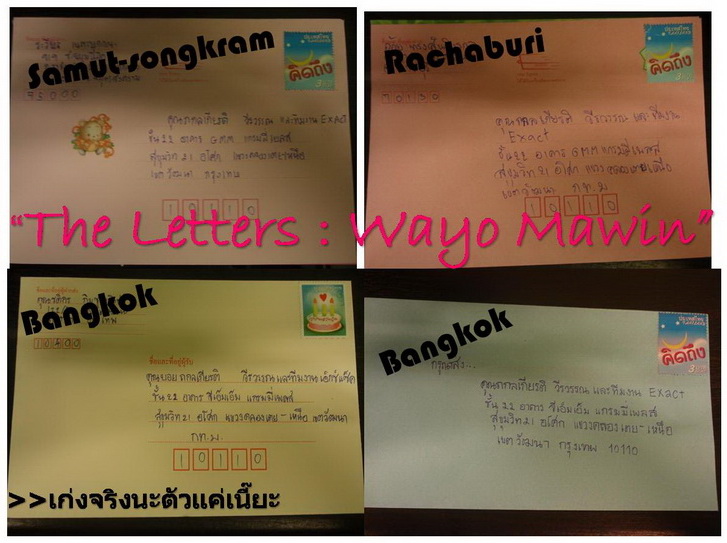 Samut-songkram
75000
ประเทศไทย
คิดถึง
3
คุณถกลเกียรติ วีรวรรณ และทีมงาน EXACT
ชั้น 22 อาคาร GMM แกรมมี่เพลส
สุขุมวิท 21 อโศก แขวงคลองเตยเหนือ
เขตวัฒนา กรุงเทพ
10110
Rachaburi
70130
ประเทศไทย
คิดถึง
3
คุณถกลเกียรติ วีรวรรณ และทีมงาน
Exact
ชั้น 22 อาคาร GMM แกรมมี่เพลส
สุขุมวิท 21 อโศก แขวงคลองเตยเหนือ
เขตวัฒนา ก.ท.ม
10110
"The Letters : Wayo Mawin"
Bangkok
10400
ชื่อและที่อยู่ผู้รับ
คุณบอย ถกลเกียรติ วีรวรรณ และทีมงาน เอ็กซ์แซ็ค
ชั้น 22 อาคาร จีเอ็มเอ็ม แกรมมี่เพลส
สุขุมวิท 21 อโศก แขวงคลองเตย-เหนือ เขตวัฒนา
ก.ท.ม.
10110
>>เก่งจริงนะตัวแค่เนี๊ยะ
Bangkok
ประเทศไทย
คิดถึง
3
กรุณาส่ง...
คุณถกลเกียรติ วีรวรรณ และทีมงาน EXACT
ชั้น 22 อาคาร จีเอ็มเอ็ม แกรมมี่เพลส
สุขุมวิท 21 อโศก แขวงคลองเตย-เหนือ
เขตวัฒนา กรุงเทพ 10110